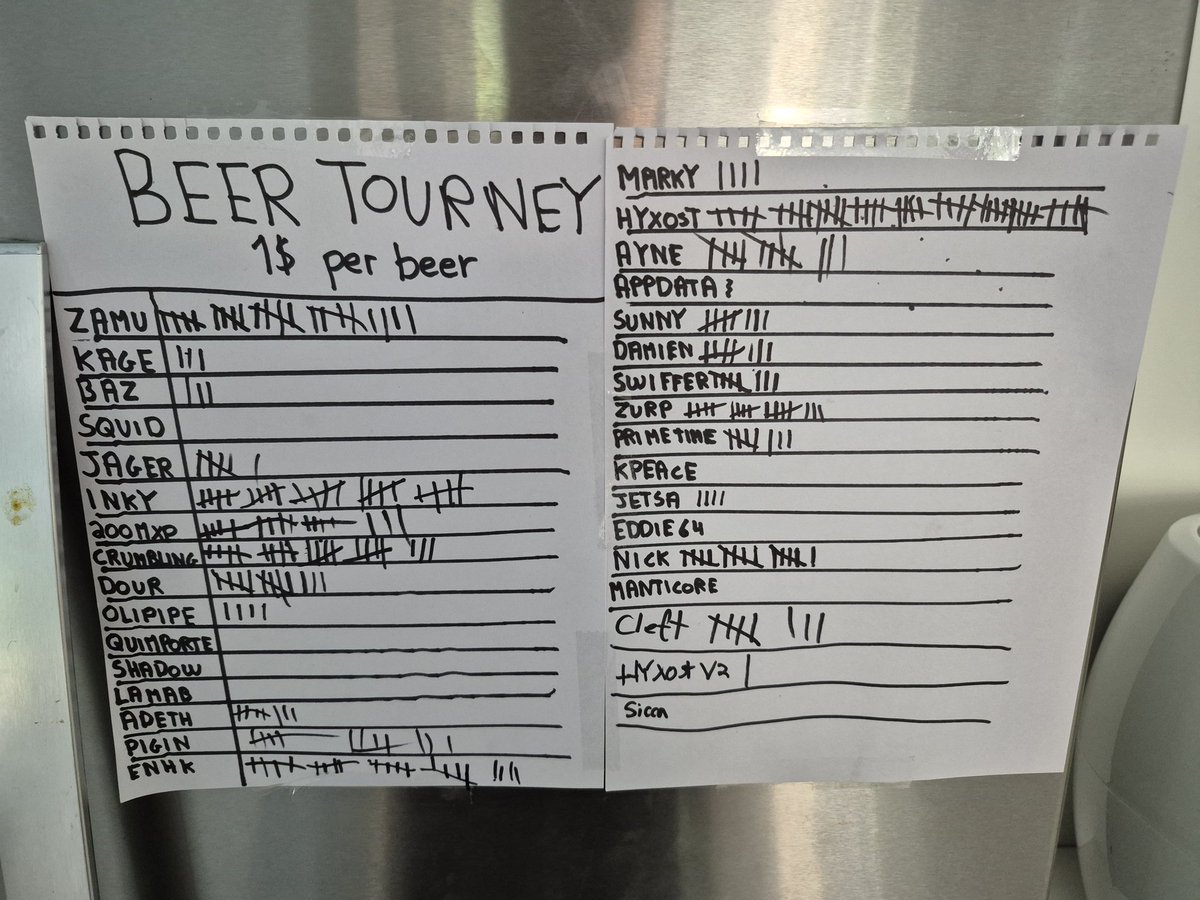 BEER TOURNEY
1$ per beer
ZAMU
KAGE
BAZ
SQUID
JAGER
INKY
200MXP
CRUMBLING
DOUR
OLIPIPE
QUIMPORTE
SHADOW
LAMAB
ADETH
PIGIN
ENHK
MARKY
HYXOST
AYNE
APPDATA
SUNNY
DAMIEN
SWIFFER
ZURP
PRIMETIME
KPEACE
JETSA
EDDIE64
NICK
MANTICORE
Cleft
HYxost V2